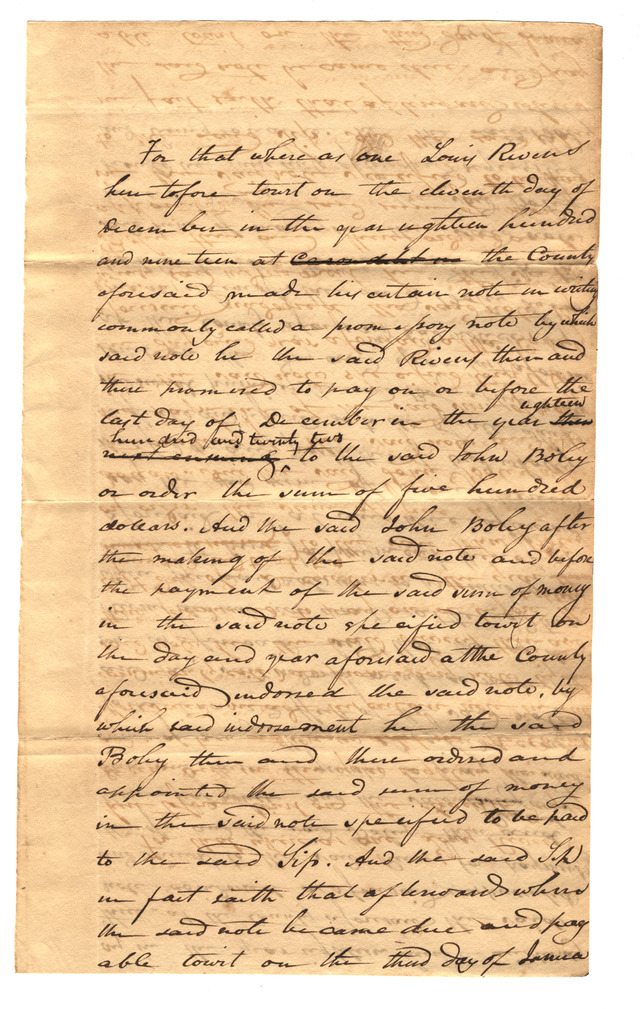 For that where as one Louis Rivers
here tofore towit on the eleventh day of
December in the year eighteen hundred
and nine teen at the County
aforesaid made his certain note in writing
commonly called a promissory note by which
said note he the said Rivers then and
there promised to pay on or before the
last day of December in the year eighteen
hundred and twenty two
to the said John Boly
or order the sum of five hundred
dollars. And the said John Boly after
the making of the said note and before
the payment of the said sum of money
in the said note specified towit on
the day and year aforesaid at the County
aforesaid indorsed the said note, by
which said indorsement he the said
Boly then and there ordered and
appointed the said sum of money
in the said note specified to be paid
to the said Sip. And the said Sip
in fact saith that afterwards when
the said note became due and pay
able towit on the third day of Janua